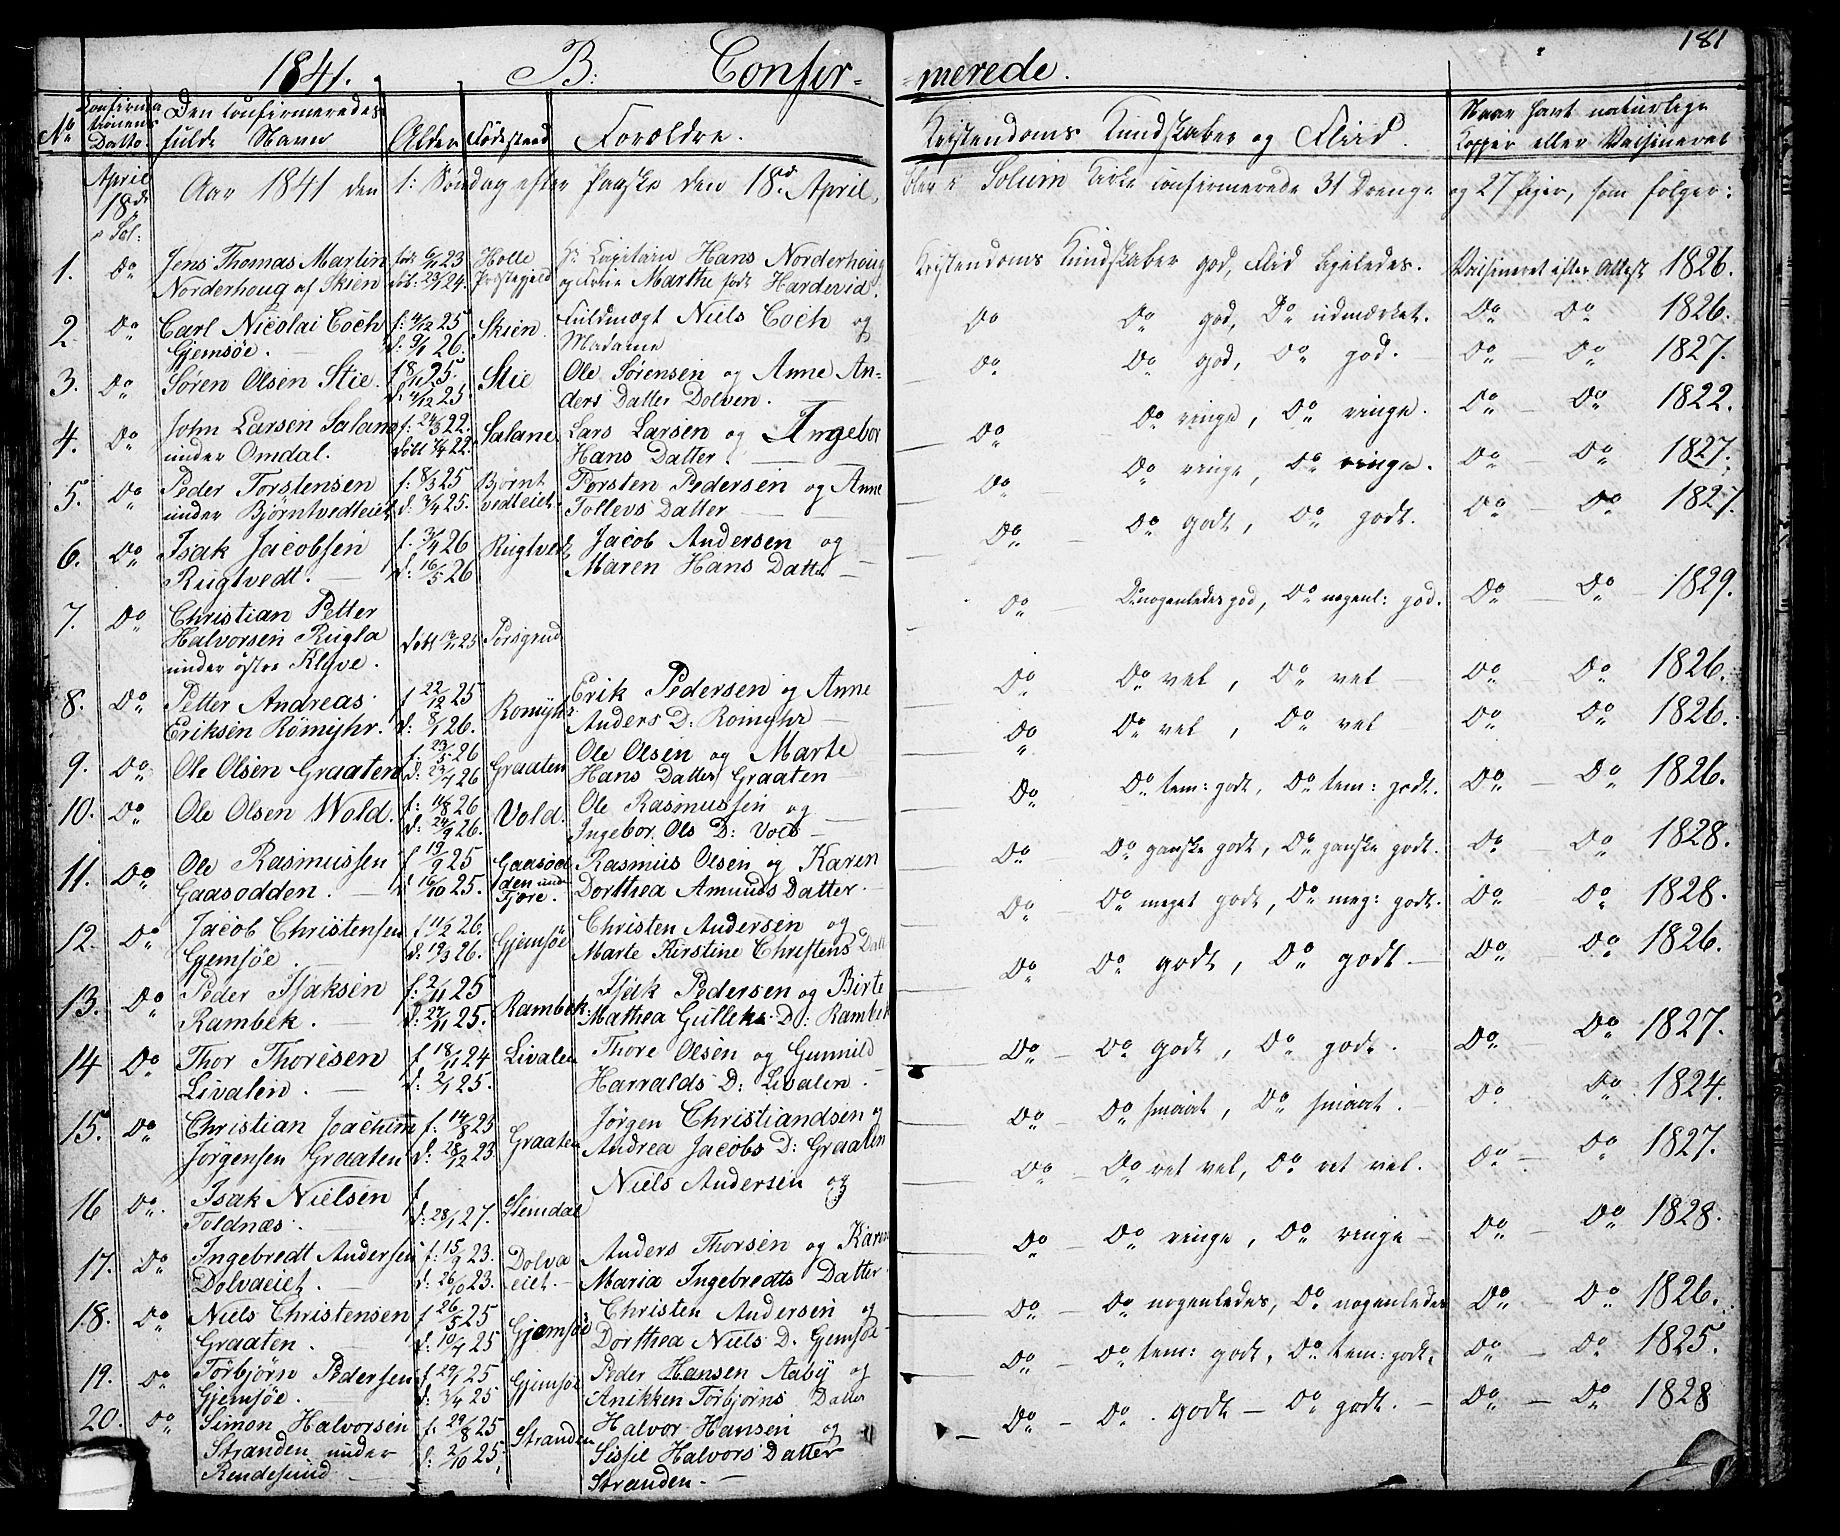 181
1841. B: Confir-merede.
No Confirmationens Datto. Den Confirmeredes fulde Navn Alder Fødested Forældre. Kristendoms Kundskaber og Fliid. Naar havt naturlige Kopper eller Vaksineret
April 18de Sol: Aar 1841 den 1: Søndag efter Paaske den 18de April, blev i Solum Kirke confirmerede 31 Drenge og 27 Piger, som følger:
1. Do Jens Thomas Martin født 6/11 23. Holle Hr Capitain Hans Norderhoug Kristendoms Kundskaber god, Flid ligeledes. Vaksineret efter Attest 1826.
Norderhoug af Skien døb: 23/1 24. Præstegjeld og Frue Marthe født Hardevid.
2. Do Carl Nicolai Coch f: 4/12 25 Skien. Fuldmægt Niels Coch og Do Do god, Do udmærket. Do Do 1826.
Gjemsøe. d: 9/1 26. Madame
3. Do Søren Olsen Stie. f 18/1 25. Stie Ole Sørensen og Anne An- Do Do god, Do god. Do Do 1827.
d: 4/12 25. ders Datter Dolven.
4. Do John Larsen Salane f: 24/3 22. Salane Lars Larsen og Ingebor Do Do ringe, Do ringe. Do Do 1822.
under Omdal. døbt 7/4 22. Hans Datter.
5. Do Peder Torstensen f: 8/3 25 Bjørnt Torsten Pedersen og Anne Do Do ringe, Do ringe. Do Do 1827.
under Bjørntvedteiet d: 3/4 25. vedteiet Tollevs Datter
6. Do Isak Jacobsen f. 3/4 26 Rugtvedt Jacob Andersen og Do Do godt, Do godt. Do Do 1827.
Rugtvedt. d: 16/5 26 Maren Hans Datter
7. Do Christian Petter Do Do nogenledes god, Do nogenl: god. Do Do 1829.
Halvorsen Rugla døbt 13/11 25 Porsgrud
under østre Klyve.
8. Do Petter Andreas f 22/12 25 Romyhr Erik Pedersen og Anne Do Do vel, Do vel Do Do 1826.
Eriksen Römyhr. d: 8/1 26. Anders D: Romyhr
9. Do Ole Olsen Graaten f: 23/5 26 Graaten Ole Olsen og Marte Do Do vel, Do vel Do Do 1826.
d: 23/4 26 Hans Datter Graaten
10. Do Ole Olsen Wold. f: 11/8 26 Vold. Ole Rasmussen og Do Do tem: godt, Do tem: godt. Do Do 1826.
d: 24/9 26. Ingebor Ols D: Vold
11. Do Ole Rasmussen f 19/9 25 Gaasod Rasmus Olsen og Karen Do Do ganske godt, Do ganske godt. Do Do 1828.
Gaasodden. d 16/10 25. den und Tjøre. Dorthea Amunds Datter
12. Do Jacob Christensen f 11/2 26. Gjemsøe Christen Andersen og Do Do meget godt, Do meg: godt. Do Do 1828.
Gjemsøe. d: 19/3 26. Marte Kirstine Christens Datt
13. Do Peder Isaksen f: 2/11 25 Rambek. Isak Pedersen og Birte Do Do godt, Do godt. Do Do 1826.
Rambek. d: 27/11 25. Mathea Gulleks D: Rambek
14 Do Thor Thorisen f 18/11 24 Livalen Thore Olsen og Gunnild Do Do godt, Do godt. Do Do 1827.
Livalen. d: 2/1 25. Harralds D: Livalen.
15. Do Christian Joachim f: 14/8 25 Graaten Jørgen Christiandsen og Do Do smaat, Do smaat. Do Do 1824.
Jørgensen Graaten d: 28/12 23 Andrea Jacobs D: Graaten
16 Do. Isak Nielsen f Slemdal Niels Andersen og Do Do ret vel, Do ret vel. Do Do 1827.
Toldnæs. d: 28/1 27.
17. Do Ingebredt Andersen f: 15/9 23. Dolva Anders Thorsen og Karen Do Do ringe, Do ringe Do Do 1828.
Dolvaeiet. d: 26/10 23. eiet. Maria Ingebredts Datter
18. Do Niels Christensen f 26/5 25 Gjemsøe Christen Andersen og Do Do nogenledes, Do nogenledes Do Do 1826.
Graaten. d: 10/7 25 Dorthea Niels D. Gemsøe
19. Do Torbjørn Pedersen f 29/1 25 Gjemsøe Peder Hansen Aaby og Do Do tem: godt, Do tem: godt. Do Do 1825.
Gjemsøe. d: 3/4 25 Anikken Torbjørns Datter
20. Do Simon Halvorsen f: 29/8 25 Stranden Halvor Hansen og Do Do. godt Do godt. Do Do 1828
Stranden under d: 2/10 25. Sissil Halvors Datter
Rendesund Stranden.